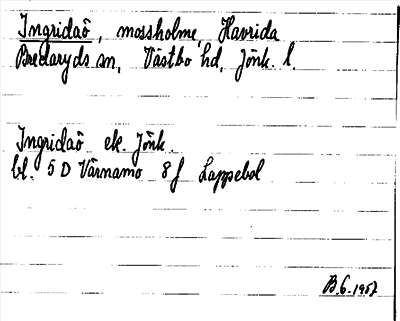 Ingridaö, mossholme, Havrida
Bredaryds sn, Västbo hd, Jönk. l.
Ingridaö ek. Jönk.
bl. 5 D Värnamo 8 f Lappebol
B.G. 1957